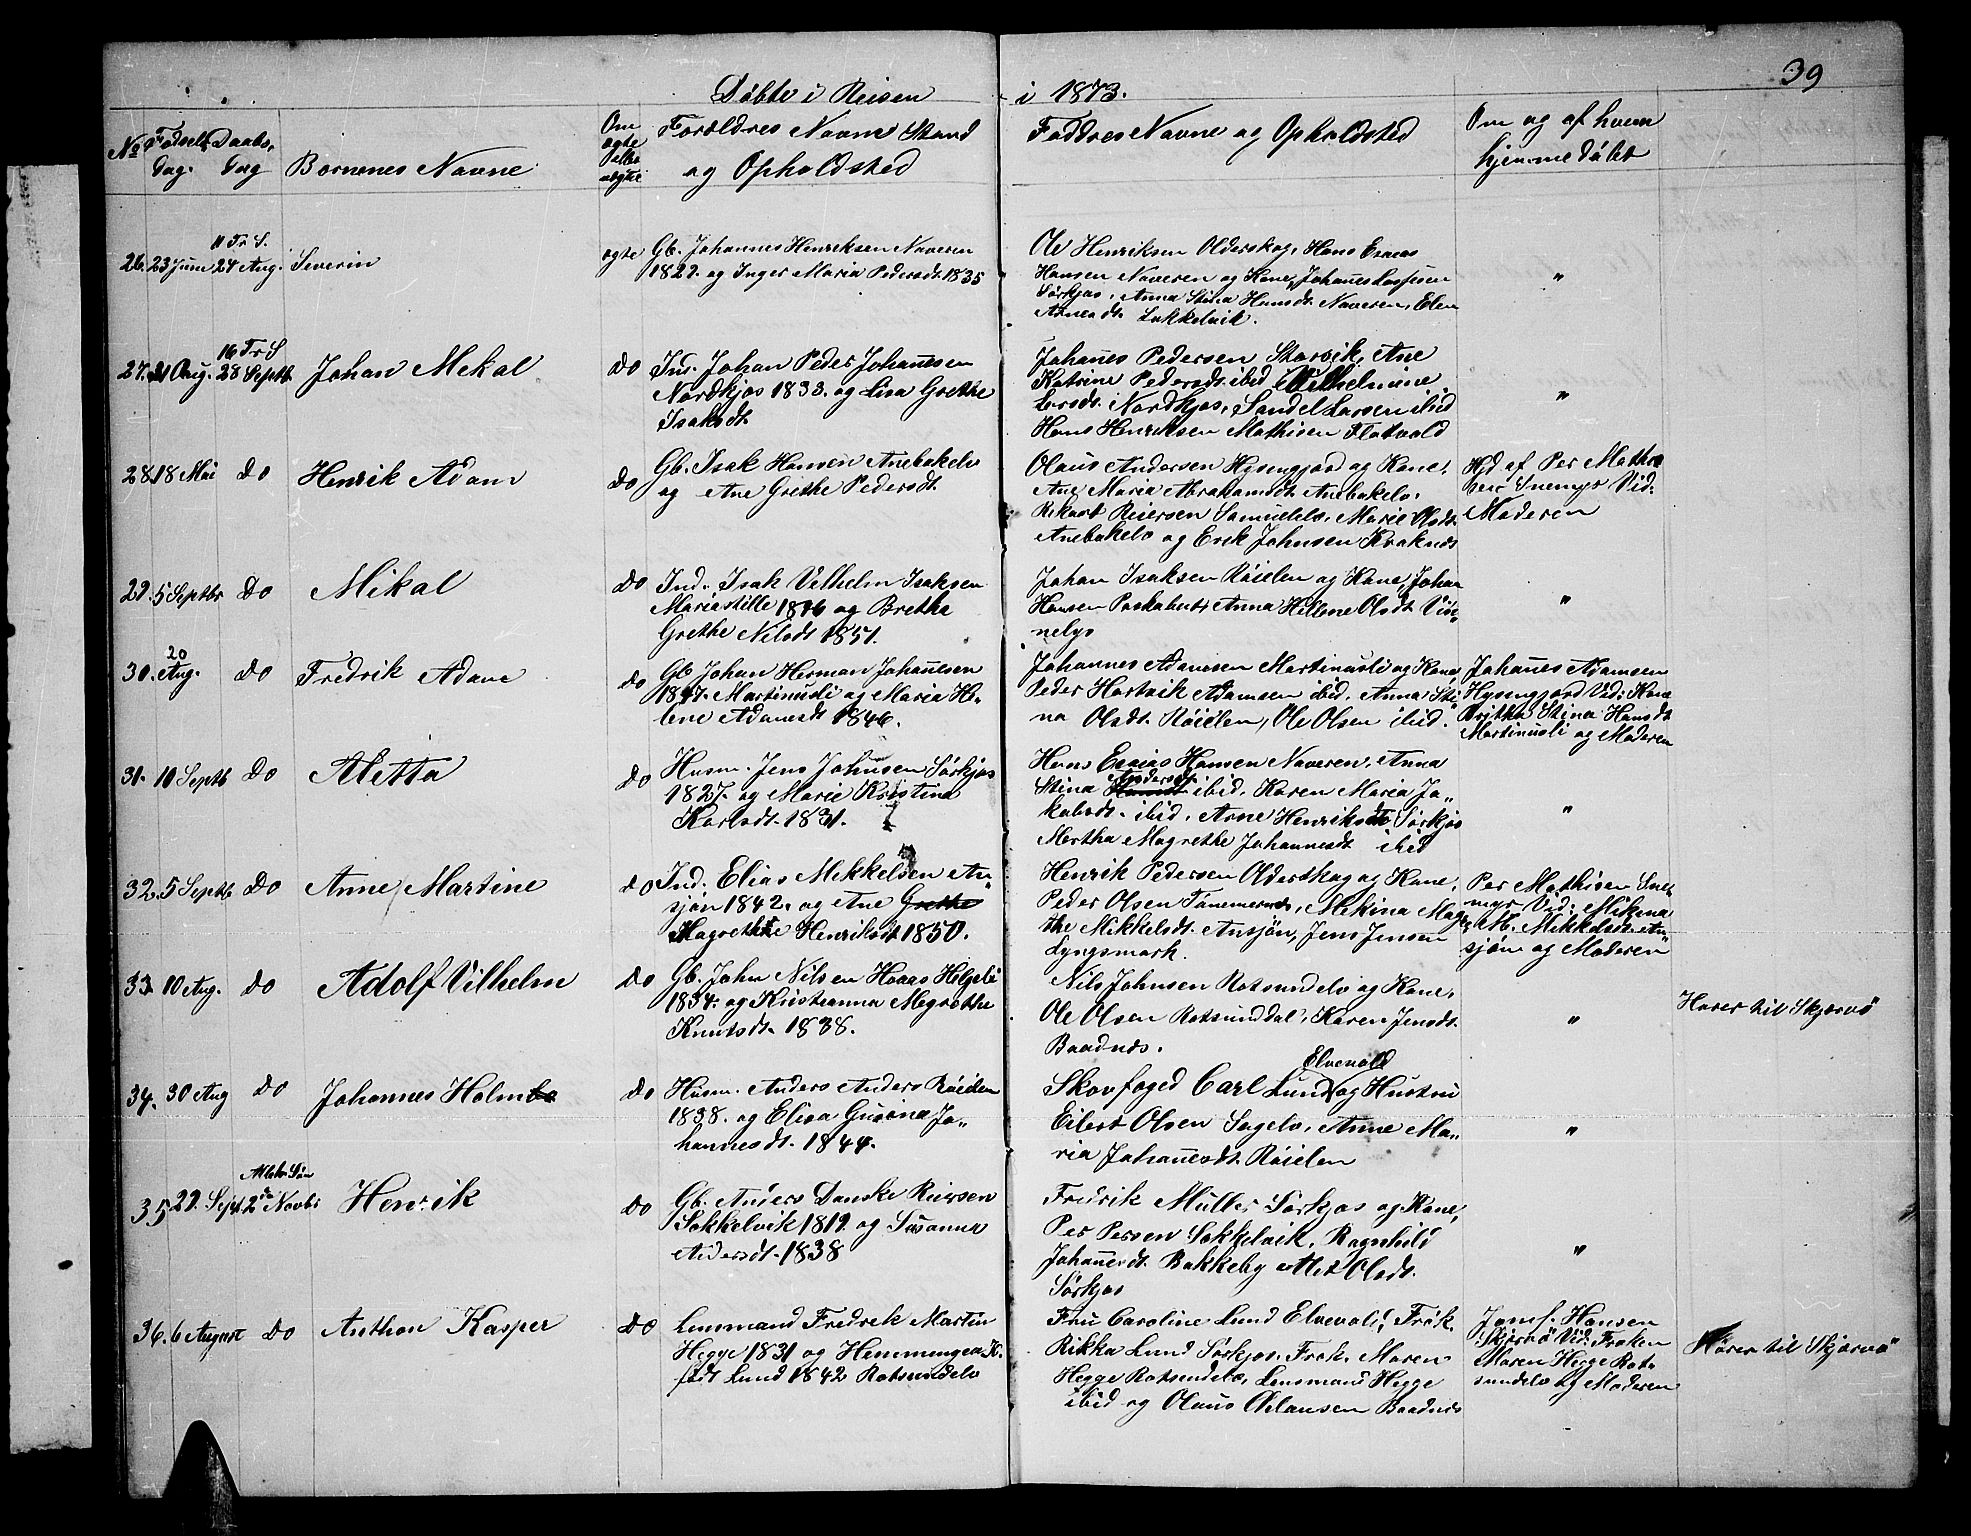 39
Döbte i Reisen i 1873.
No Fødsels Dag. Daabs Dag Bornenes Navne Om ægte eller uægte Forældres Navne Stand og Opholdsted Faddres Navne og Opholdsted Om og af hvem hjemmedøbt
26. 23 Juni 11 Tr S. 24 Aug. Severin ægte
Gb. Johannes Henriksen Naveren
1822. og Inger Maria Pedersdt. 1835
Ole Henriksen Olderskog, Hans Esaias
Hansen Naveren og Kone, Johannes
Sørkjos, Anna Stina Hansdt. Naveren, Elen
Arnesdt. Lokkelvik.
"
27. 21 Aug. 16 Tr S 28 Septb. Johan Mekal Do
Ind. Johan Peder Johannesen
Nordkjos 1833. og Lisa Grethe
Isaksdt.
Johanes Pedersen Storvik, Ane
Katrine Pedersdt. ibid Vilhelmine
Larsdt. Nordkjos, Sandel Larsen ibid
Hans Henriksen Mathisen Flatvold
"
28. 18 Mai Do Henrik Adam Do
Gb. Isak Hansen Anebakelv
og Ane Grethe Pedersdt.
Olaus Andersen Hysingjord og Kone,
Ane Maria Abrahamsdt. Anebakelv.
Rikart Reiersen Samuelelv, Marie Olsdt.
Anebakelv og Erik Johnsen Kraknæs
Hjd. af Per Mathisen Snemyr Vid:
Moderen
29. 5 Septbr Do Mikal Do
Ind. Isak Vilhelm Isaksen
Mariestille 1846 og Brethe
Grethe Nilsdt 1851.
Johan Isaksen Røielen og Kone, Johan
Hansen Paskabut, Anna Hellene Olsdt. Vin-
nelys
"
30. 20 Aug. Do Fredrik Adam Do
Gb Johan Herman Johannesen
1847. Martinusli og Maria He-
lene Adamsdt 1846.
Johannes Adamsen Martinusli og Kone,
Peder Hartvik Adamsen ibid. Anna Sti-
na Olsdt. Røielen, Ole Olsen ibid.
Johanes Adamsen
Hysingjord Vid: Kone
Britha Stina Hansdt
Martinusli og Moderen
31. 10 Septb Do Aletta Do
Husm. Jens Johnsen Sørkjos
1827. og Marie Kristina
Karlsdt. 1831.
Hans Esaias Hansen Naveren, Anna
Stina Andersdt ibid, Karen Maria Ja-
kobsdt. ibid, Arne Henriksen Sørkjos
Martha Magrethe Johannesdt ibid
"
32. 5 Septb Do Anne Martine Do
Ind: Elias Mekkelsen An-
sjön 1842. og Ane Grethe
Magrethe Henriksdt 1850.
Henrik Pedersen Olderskog og Kone,
Peder Olsen Tømmernes, Mekina Magre-
the Mikkelsdt. Ansjön, Jens Jensen
Lyngsmark.
Per Mathisen Sne-
myr Vid: Mikina
M. Mikkelsdt. An-
sjön og Moderen
33. 10 Aug. Do Adolf Vilhelm Do
Gb. John Nilsen Haaas Helgeli
1834. og Kristianna Magrethe
Knutsdt. 1838.
Nils Johnsen Rotsundelv og Kone,
Ole Olsen Rotsunddal, Karen Jensdt.
Baadnæs.
"
Hører til Skjærvø
34. 30 Aug Do Johannes Holm Do
Husm. Anders Anders Røielen
1838. og Elisa Gurina Jo-
hannesdt. 1844.
Elvevold
Skovfoged Carl Lund og Hustru
Eilert Olsen Sagelv, Anne Ma-
ria Johanesdt. Røielen
"
35 27. Sept. Alleh. Søn 2de Novbr Henrik Do
Gb. Anders Danske Reiersen
Sokkelvik 1819. og Susanna
Andersdt. 1838
Fredrik Müller Sørkjos og Kone,
Per Persen Sokkelvik, Ragnhild
Johanesdt. Bakkeby, Alet Olsdt.
Sørkjos
"
36. 6 August Do Anthon Kasper Do
Lensmand Fredrek Martin
Hegge 1831 og Hemmingea K.
født Lund 1842 Rotsundelv
Fru Caroline Lund Elvevold, Frøk.
Rikka Lund Sørkjos, Frøk. Maren
Hegge Rotsundelv, Lensmand Hegge
ibid og Olaus Olausen Baadnæs
Jomf. Hansen
Skjærvø Vid: Frøken
Maren Hegge Rot-
sundelv og Moderen
Hører til Skjærvø